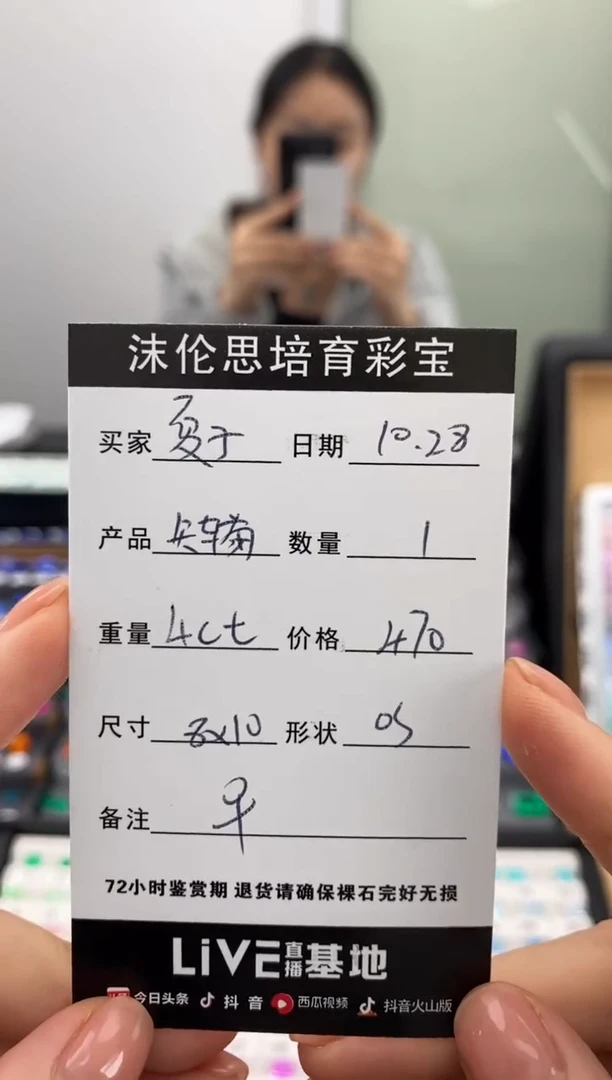 沫伦思培育彩宝
买家 夏于 日期 10.28
产品 数量 1
重量 4ct 价格 470
尺寸 8x10 形状 OS
备注 早
72小时鉴赏期 退货请确保裸石完好无损
LiVE直播基地
今日头条 抖音 西瓜视频 抖音火山版